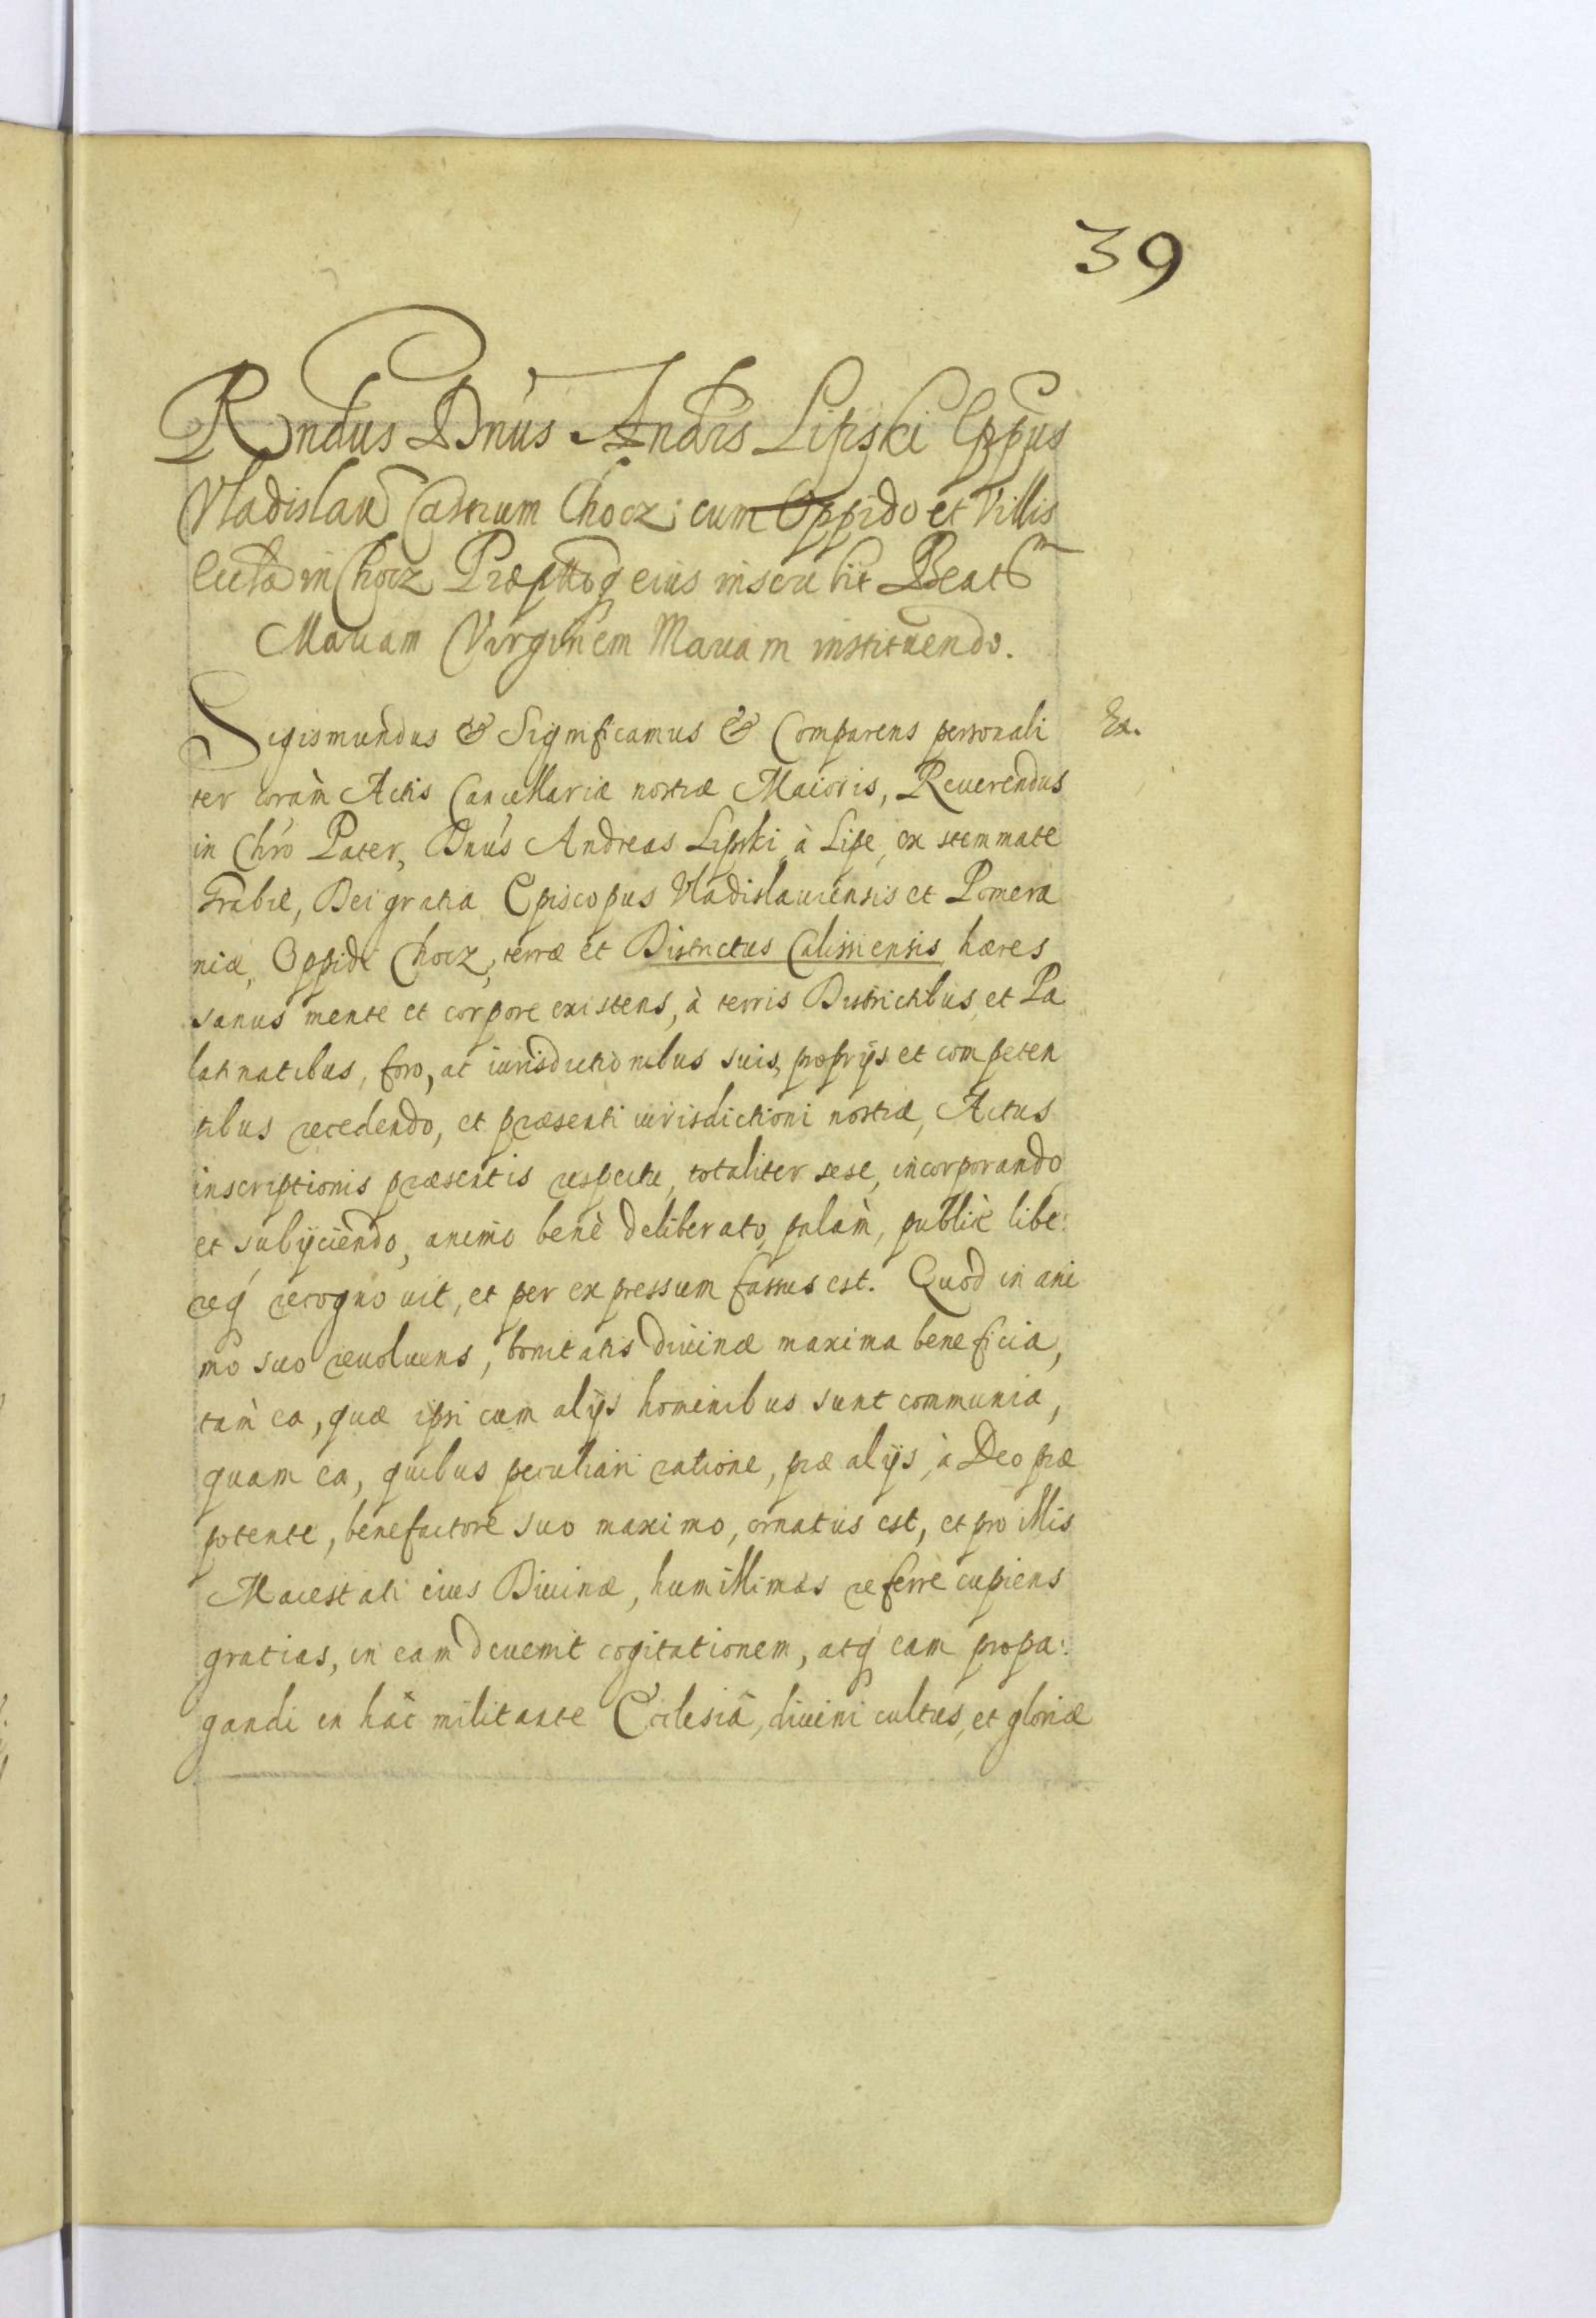 39
Rndus Dnus Andrs Lipski Eppus
Vladislau Castrum Chocz cum Oppido et Villis
Ecclae in Chocz Præpttoq eius inscribit Beatm
Mariam Virginem Mariam instituendo.
Sigismundus & Significamus & Comparens personali Ex.
ter coràm Actis Cancellariæ nostræ Maioris, Reuerendus
in Chro Pater, Dnus Andreas Lipski à Lipe, ex stemmate
Grabie, Dei gratia Episcopus Vladislauiensis et Pomera
niæ, Oppidi Chocz, terræ et Districtus Calissiensis hæres
sanus mente et corpore existens, à terris Districtibus et Pa
latinatibus, foro, ac iurisdictionibus suis, proprijs et competen
tibus recedendo, et præsenti iurisdictioni nostræ, Actus
inscriptionis præsentis respectu, totaliter sese, incorporando
et subijciendo, animo benè deliberato, palàm, publicè libe:
req recognouit, et per expressum fassus est. Quod in ani
mo suo reuoluens, bonitatis diuinæ maxima beneficia,
tam ea, quæ ipsi cum alijs hominibus sunt communia,
quam ea, quibus peculiari ratione, præ alijs, à Deo præ
potente, benefactore suo maximo, ornatus est, et pro illis
Maiestati eius Diuinæ, humillimas referre cupiens
gratias, in eam deuenit cogitationem, atq eam propa:
gandi in hâc militante Ecclesiâ, diuini cultus, et gloriæ